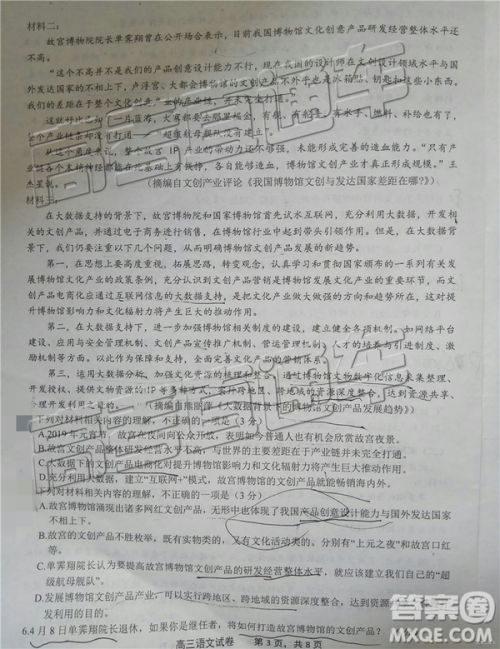 材料二：
故宫博物院院长单霁翔曾在公开场合表示，目前我国博物馆文化创意产品研发经营整体水平还
不高。
“这个不高并不是我们的产品创意设计能力不行，现在
发达国家的不相上下，卢浮宫、大都会博物馆的文创产品不也是冰箱贴、钥匙扣这些小东西。
我们的差距在于整个文化创意产业的产业性，并未完全打造。”
这就好比
整个产业链条却没有打通
杰呈说。
（摘编自文创产业评论《我国博物馆文创与发达国家差距在哪？》）
材料三：
在大数据支持的背景下，故宫博物院和国家博物馆首先试水互联网，充分利用大数据，开发相
关的文创产品，并通过电子商务进行销售，在博物馆行业中起到带头引领作用。但是，在
大数据的背景下，我们还需要注重以下几个问题，从而明确博物馆文创产品发展的新趋势。
第一，在思想上要高度重视，拓展思路，转变观念，认真学习和贯彻国家颁布的一系列有关发
展博物馆文化产业的政策条例，充分认识到文创产品营销是博物馆发展文化产业的重要环节，而文
创产品电商化应通过互联网信息的大数据支持，是把文化产业做大做强的方向和趋势所在，这对提
升博物馆影响力和文化辐射力将产生巨大的推动作用。
第二，在大数据支持下，进一步加强博物馆相关制度的建设，建立健全各项机制。如网络平台
建设、应用与安全管理机制、文创产品宣传推广机制、营销运营机制、人才的培养与引进制度、激
励机制等方面，以此作为保障和支持，全面完善文创产品的营销策略。
第三，运用大数据分析，加强文化资源的梳理和整合，通过博物馆文物数字化信息采集整理、
开发授权、提供文物资源的IP等多种方式，实行跨地区、跨地域的资源深度整合，达到资源共享、
合理开发利用之目的。（摘编自
《大数据背景下的博物馆文创产品发展趋势》）
下列对材料相关内容的理解，不正确的一项是（3分）
A.2019年元宵节，故宫在夜间向公众开放，表明如今普通人也有机会欣赏故宫夜景。
B.故宫文创产品整体研发经营水平不高，与世界的主要差距在于产业链并未完全打通。
C.大数据下的文创产品电商化对提升博物馆影响力和文化辐射力将产生巨大推动作用。
D.充分利用大数据，建立“互联网+”模式，国内博物馆的文创产品就能畅销海内外。
列对材料相关内容的理解，不正确的一项是（3分）
A.故宫博物馆涌现出诸多网红文创产品，无形中也体现了我国产品创意设计能力与国外发达国家
不相上下。
B.故宫的文创产品不胜枚举，既有实物类的，又有文化活动类的。分别有“上元之夜”和故宫口红
等。
C.单霁翔院长认为要提高故宫文创产品的研发经营整体水平，就应该建立我们自己的“超
级航母舰队”。
D.发展博物馆文创产品产业可以实行跨地区、跨地域的资源深度整合，达到文物资源共享、合理开
发利用的目的。
6.4月8日单霁翔院长退休，如果你是继任者，将如何打造故宫博物馆的文创产品？
高三语文试卷 第3页，共8页
答案圈
MXQE.COM